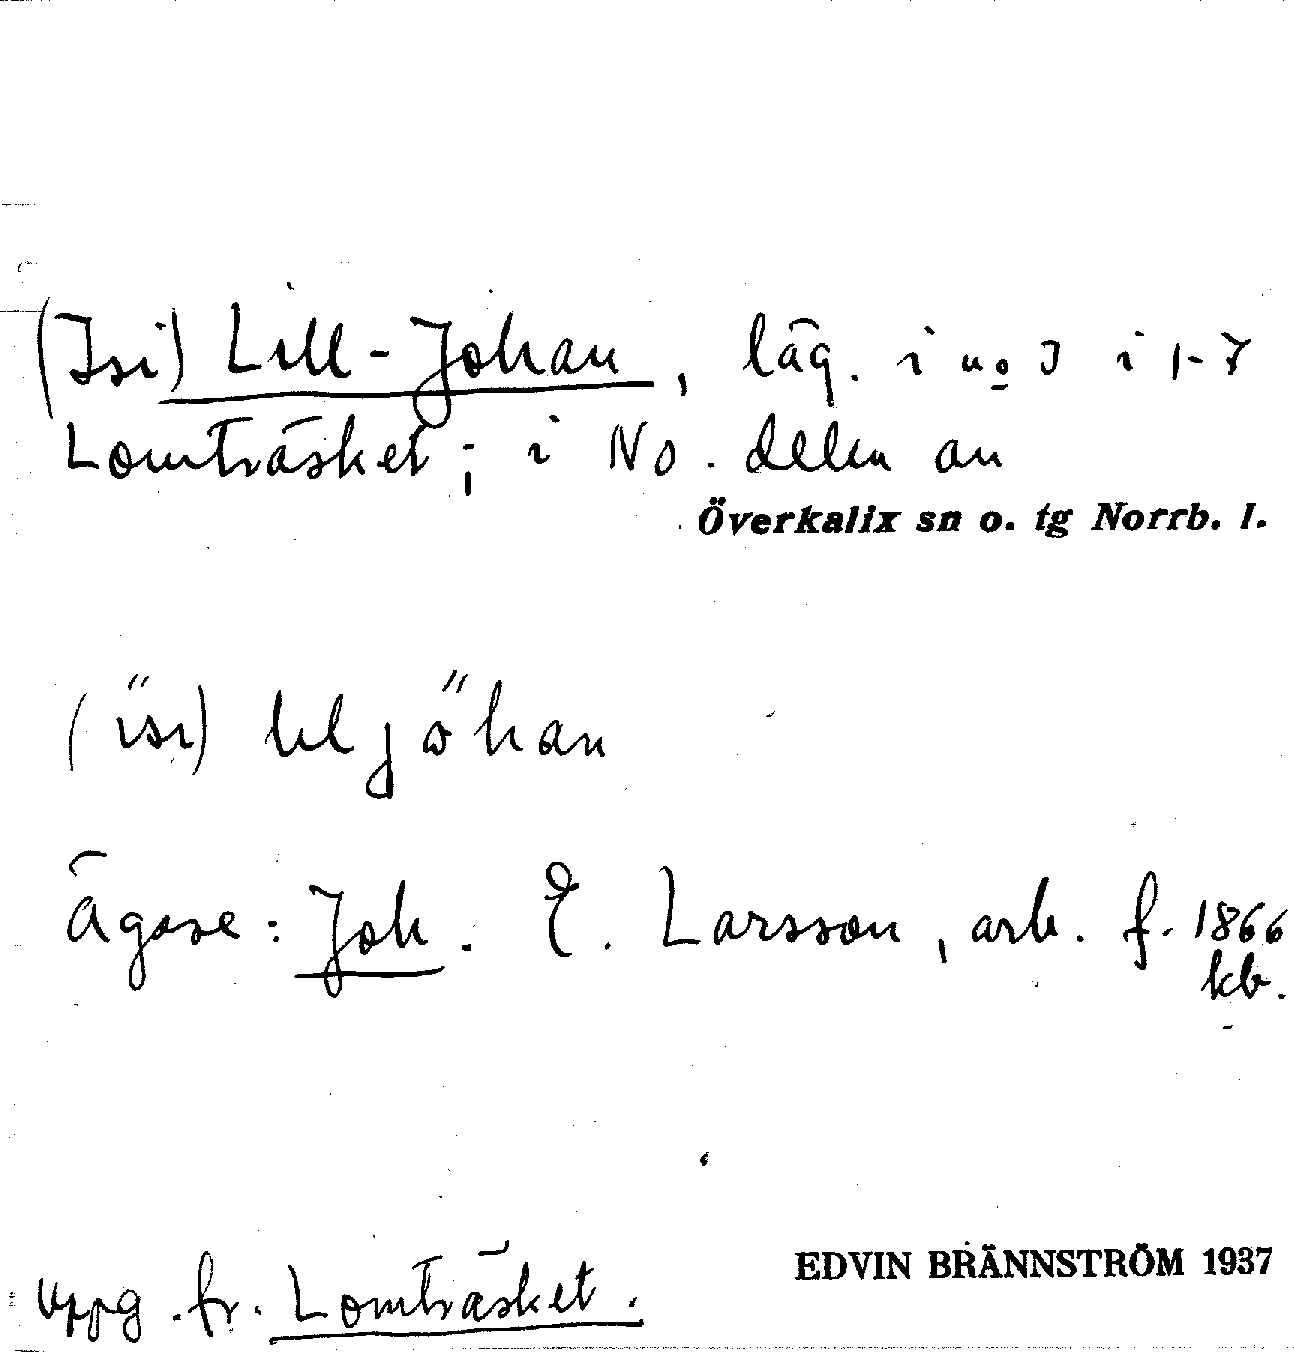 (Isi) Lill-Johan, läg. i no 3 i 1-7
Lomträsket; i No. delen an
Överkalix sn o. tg Norrb. l.
(ïsi) liljöhan
Ägare: Joh. E. Larsson, arb. f. 1866
kb.
Uppg. fr. Lomträsket.
EDVIN BRÄNNSTRÖM 1937